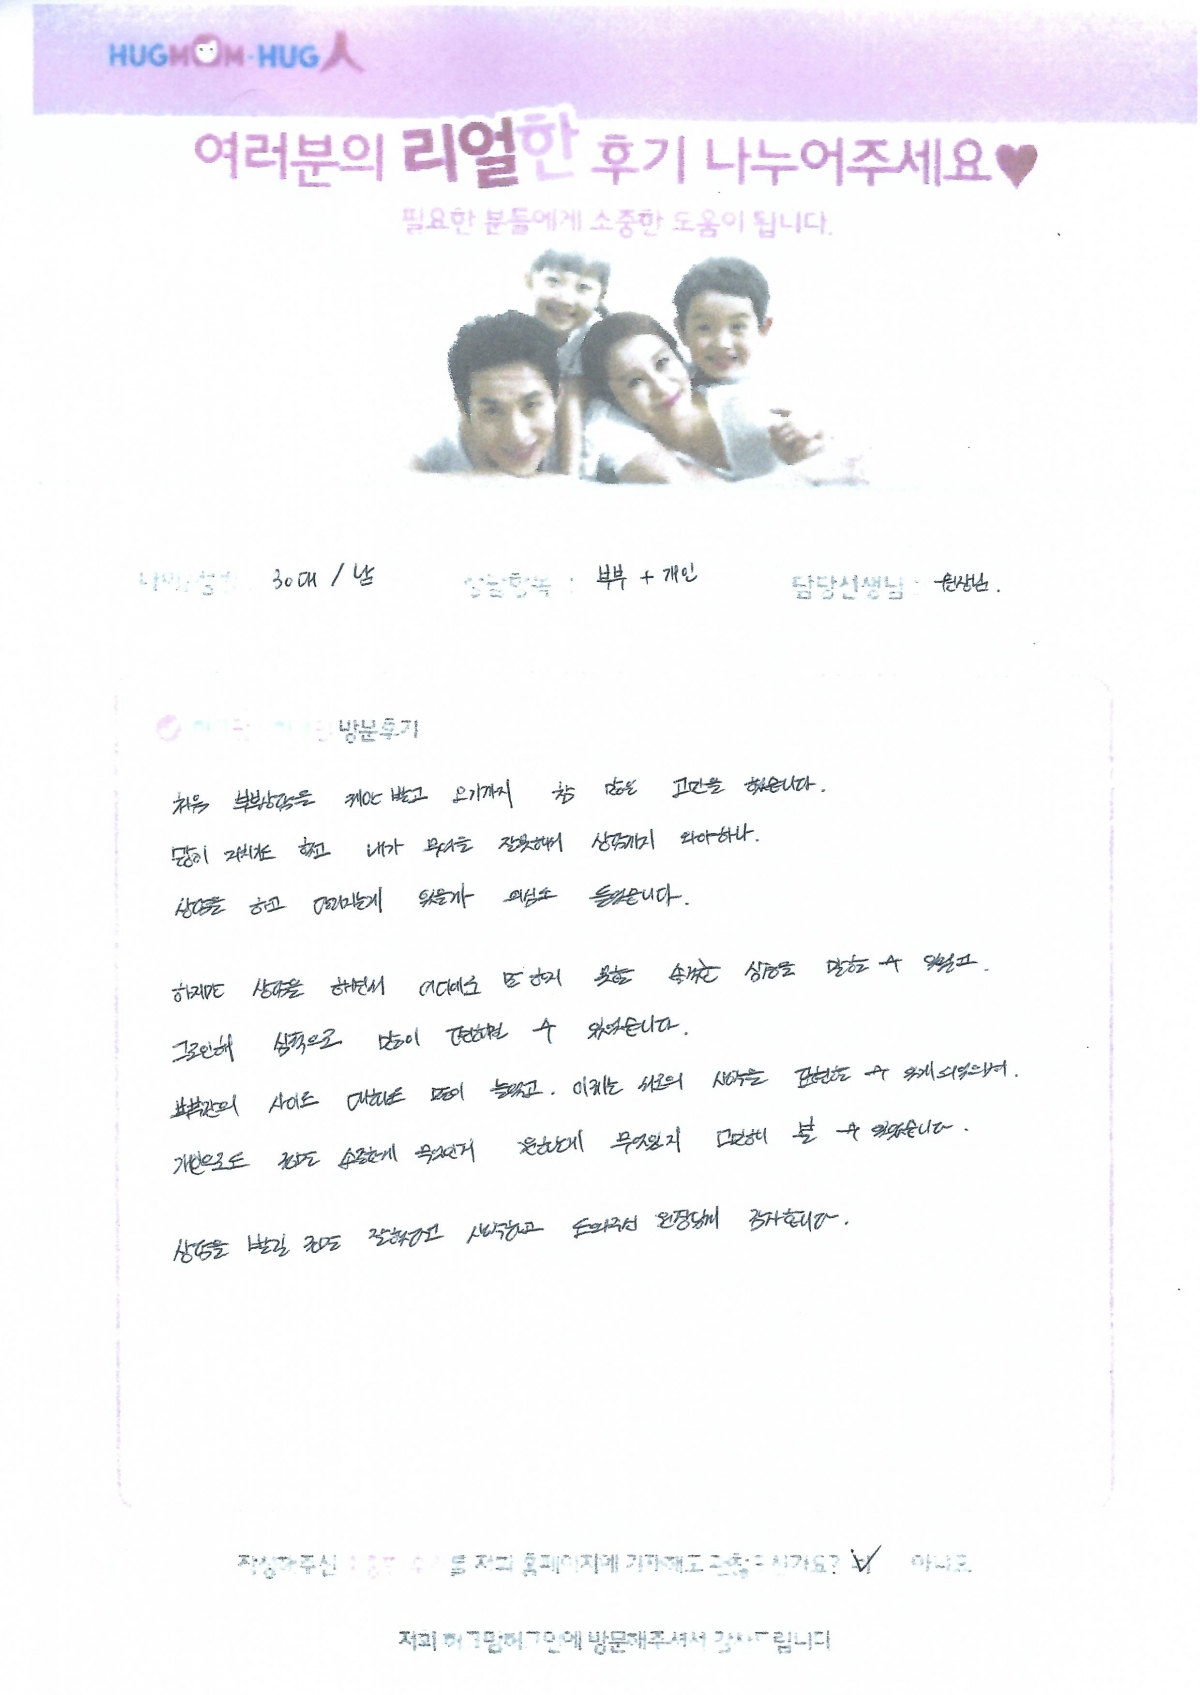 HUGMOM·HUG人
여러분의 리얼한 후기 나누어주세요♥
필요한 분들에게 소중한 도움이 됩니다.
30대 / 남 부부 + 개인 담당선생님 : 원장님.
방문후기
처음 부부상담을 제안 받고 오기까지 참 많은 고민을 했습니다.
많이 지치기도 했고 내가 무엇을 잘못해서 상담까지 와야하나.
상담을 하고 달라지는게 있을까 의심도 들었습니다.
하지만 상담을 하면서 어디에도 말 하지 못한 속깊은 심정을 말할 수 있었고.
그로인해 심적으로 많이 편안해질 수 있었습니다.
부부간의 사이도 대화도 많이 늘었고. 이제는 서로의 생각을 표현할 수 있게 되었으며.
개인으로도 소중한게 무엇인지 고민해 볼 수 있었습니다.
상담을 받길 잘했다고 생각하고 도와주신 원장님께 감사합니다.
작성해주신 소중한 후기를 저희 홈페이지에 기재해도 괜찮으신가요? 네 ✓ 아니오
저희 허그맘허그인에 방문해주셔서 감사드립니다